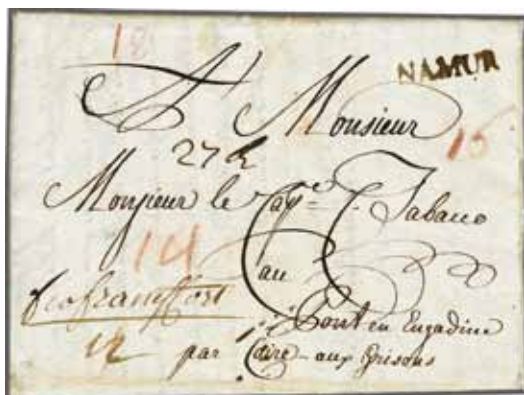 18
NAMUR
A Monsieur
16
27
Monsieur le Cap.e C. Jabano
14
au
fco francffort
Pont en Engadine
12
par Coire aux Grisons